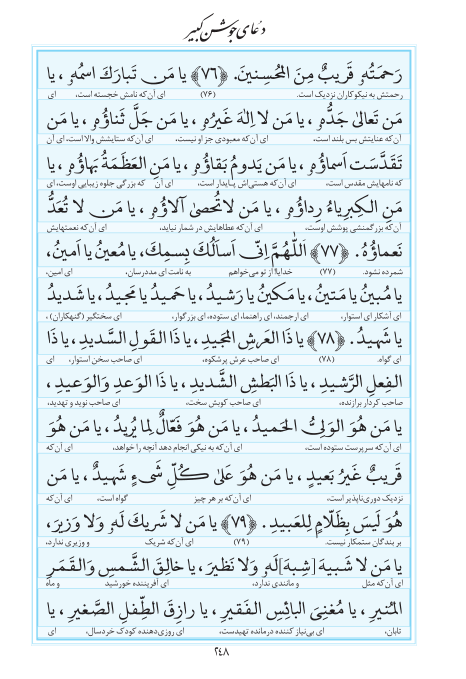 دعای جوشن کبیر
رَحمَتُهُ قَریبٌ مِنَ المُحسِنینَ. ﴿۷۶﴾ یا مَن تَبارَکَ اسمُهُ، یا
رحمتش به نیکوکاران نزدیک است. (۷۶) ای آن‌که نامش خجسته است، ای
مَن تَعالیٰ جَدُّهُ، یا مَن لا اِلٰهَ غَیرُهُ، یا مَن جَلَّ ثَناؤُهُ، یا مَن
آن‌که عنایتش بس بلند است، ای آن‌که معبودی جز او نیست، ای آن‌که ستایشش والا است، ای آن
تَقَدَّسَت اَسماؤُهُ، یا مَن یَدومُ بَقاؤُهُ، یا مَنِ العَظَمَةُ بَهاؤُهُ، یا
که نامهایش مقدس است، ای آن‌که هستی‌اش پایدار است، ای آن که بزرگی جلوه زیبایی اوست، ای
مَنِ الکِبرِیاءُ رِداؤُهُ، یا مَن لا تُحصیٰ آلاؤُهُ، یا مَن لا تُعَدُّ
آن‌که بزرگمنشی پوشش اوست، ای آن‌که عطاهایش در شمار نیاید، ای آن‌که نعمتهایش
نَعماؤُهُ. ﴿۷۷﴾ اَللّٰهُمَّ اِنّی اَسأَلُکَ بِسمِکَ، یا مُعینُ یا اَمینُ،
شمرده نشود. (۷۷) خدایا! از تو می‌خواهم به نامت ای مددرسان، ای امین،
یا مُبینُ یا مَتینُ، یا مَکینُ یا رَشیدُ، یا حَمیدُ یا مَجیدُ، یا شَدیدُ
ای آشکار ای استوار، ای ارجمند، ای راهنما، ای ستوده، ای بزرگوار، ای سختگیر (گنهکاران)،
یا شَهیدُ. ﴿۷۸﴾ یا ذَا العَرشِ المَجیدِ، یا ذَا القَولِ السَّدیدِ، یا ذَا
ای گواه. (۷۸) ای صاحب عرش پرشکوه، ای صاحب سخن استوار، ای
الفِعلِ الرَّشیدِ، یا ذَا البَطشِ الشَّدیدِ، یا ذَا الوَعدِ وَالوَعیدِ،
صاحب کردار برازنده، ای صاحب کوبش سخت، ای صاحب نوید و تهدید،
یا مَن هُوَ الوَلِیُّ الحَمیدُ، یا مَن هُوَ فَعّالٌ لِما یُریدُ، یا مَن هُوَ
ای آن‌که سرپرست ستوده است، ای آن‌که به نیکی انجام دهد آنچه را خواهد، ای آن‌که
قَریبٌ غَیرُ بَعیدٍ، یا مَن هُوَ عَلیٰ کُلِّ شَیءٍ شَهیدٌ، یا مَن
نزدیک دوری‌ناپذیر است، ای آن‌که بر هر چیز گواه است، ای آن‌که
هُوَ لَیسَ بِظَلّامٍ لِلعَبیدِ. ﴿۷۹﴾ یا مَن لا شَریکَ لَهُ وَلا وَزیرَ،
بر بندگان ستمکار نیست. (۷۹) ای آن‌که شریک و وزیری ندارد،
یا مَن لا شَبیهَ [شِبهَ] لَهُ وَلا نَظیرَ، یا خالِقَ الشَّمسِ وَالقَمَرِ
ای آن‌که مثل و مانندی ندارد، ای آفریننده خورشید و ماه
المُنیرِ، یا مُغنِیَ البائِسِ الفَقیرِ، یا رازِقَ الطِّفلِ الصَّغیرِ، یا
تابان، ای بی‌نیاز کننده درمانده تهیدست، ای روزی‌دهنده کودک خردسال، ای
۲۴۸